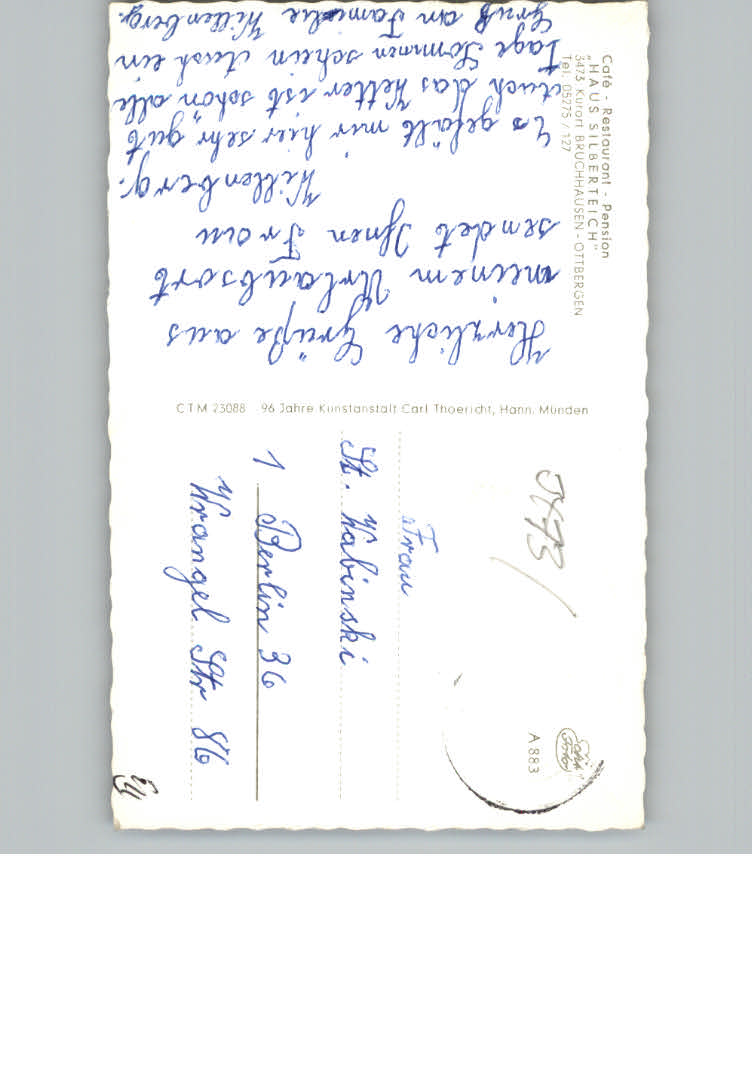 Café - Restaurant - Pension
„HAUS SILBERTEICH"
3473 Kurort BRUCHHAUSEN - OTTBERGEN
Tel. 05275 / 127
Herzliche Grüße aus
meinem Urlaubsort
sendet Ihnen Frau
Willenberg.
Es gefält mir hier sehr gut
Auch das Wetter ist schön alle
Tage Sonnen schein Auch ein
Gruß an Familie Willenberg.
CTM 23088 96 Jahre Kunstanstalt Carl Thoericht, Hann. Münden
A 883
Frau
St. Wabinski
1 Berlin 36
Wrangel Str 86